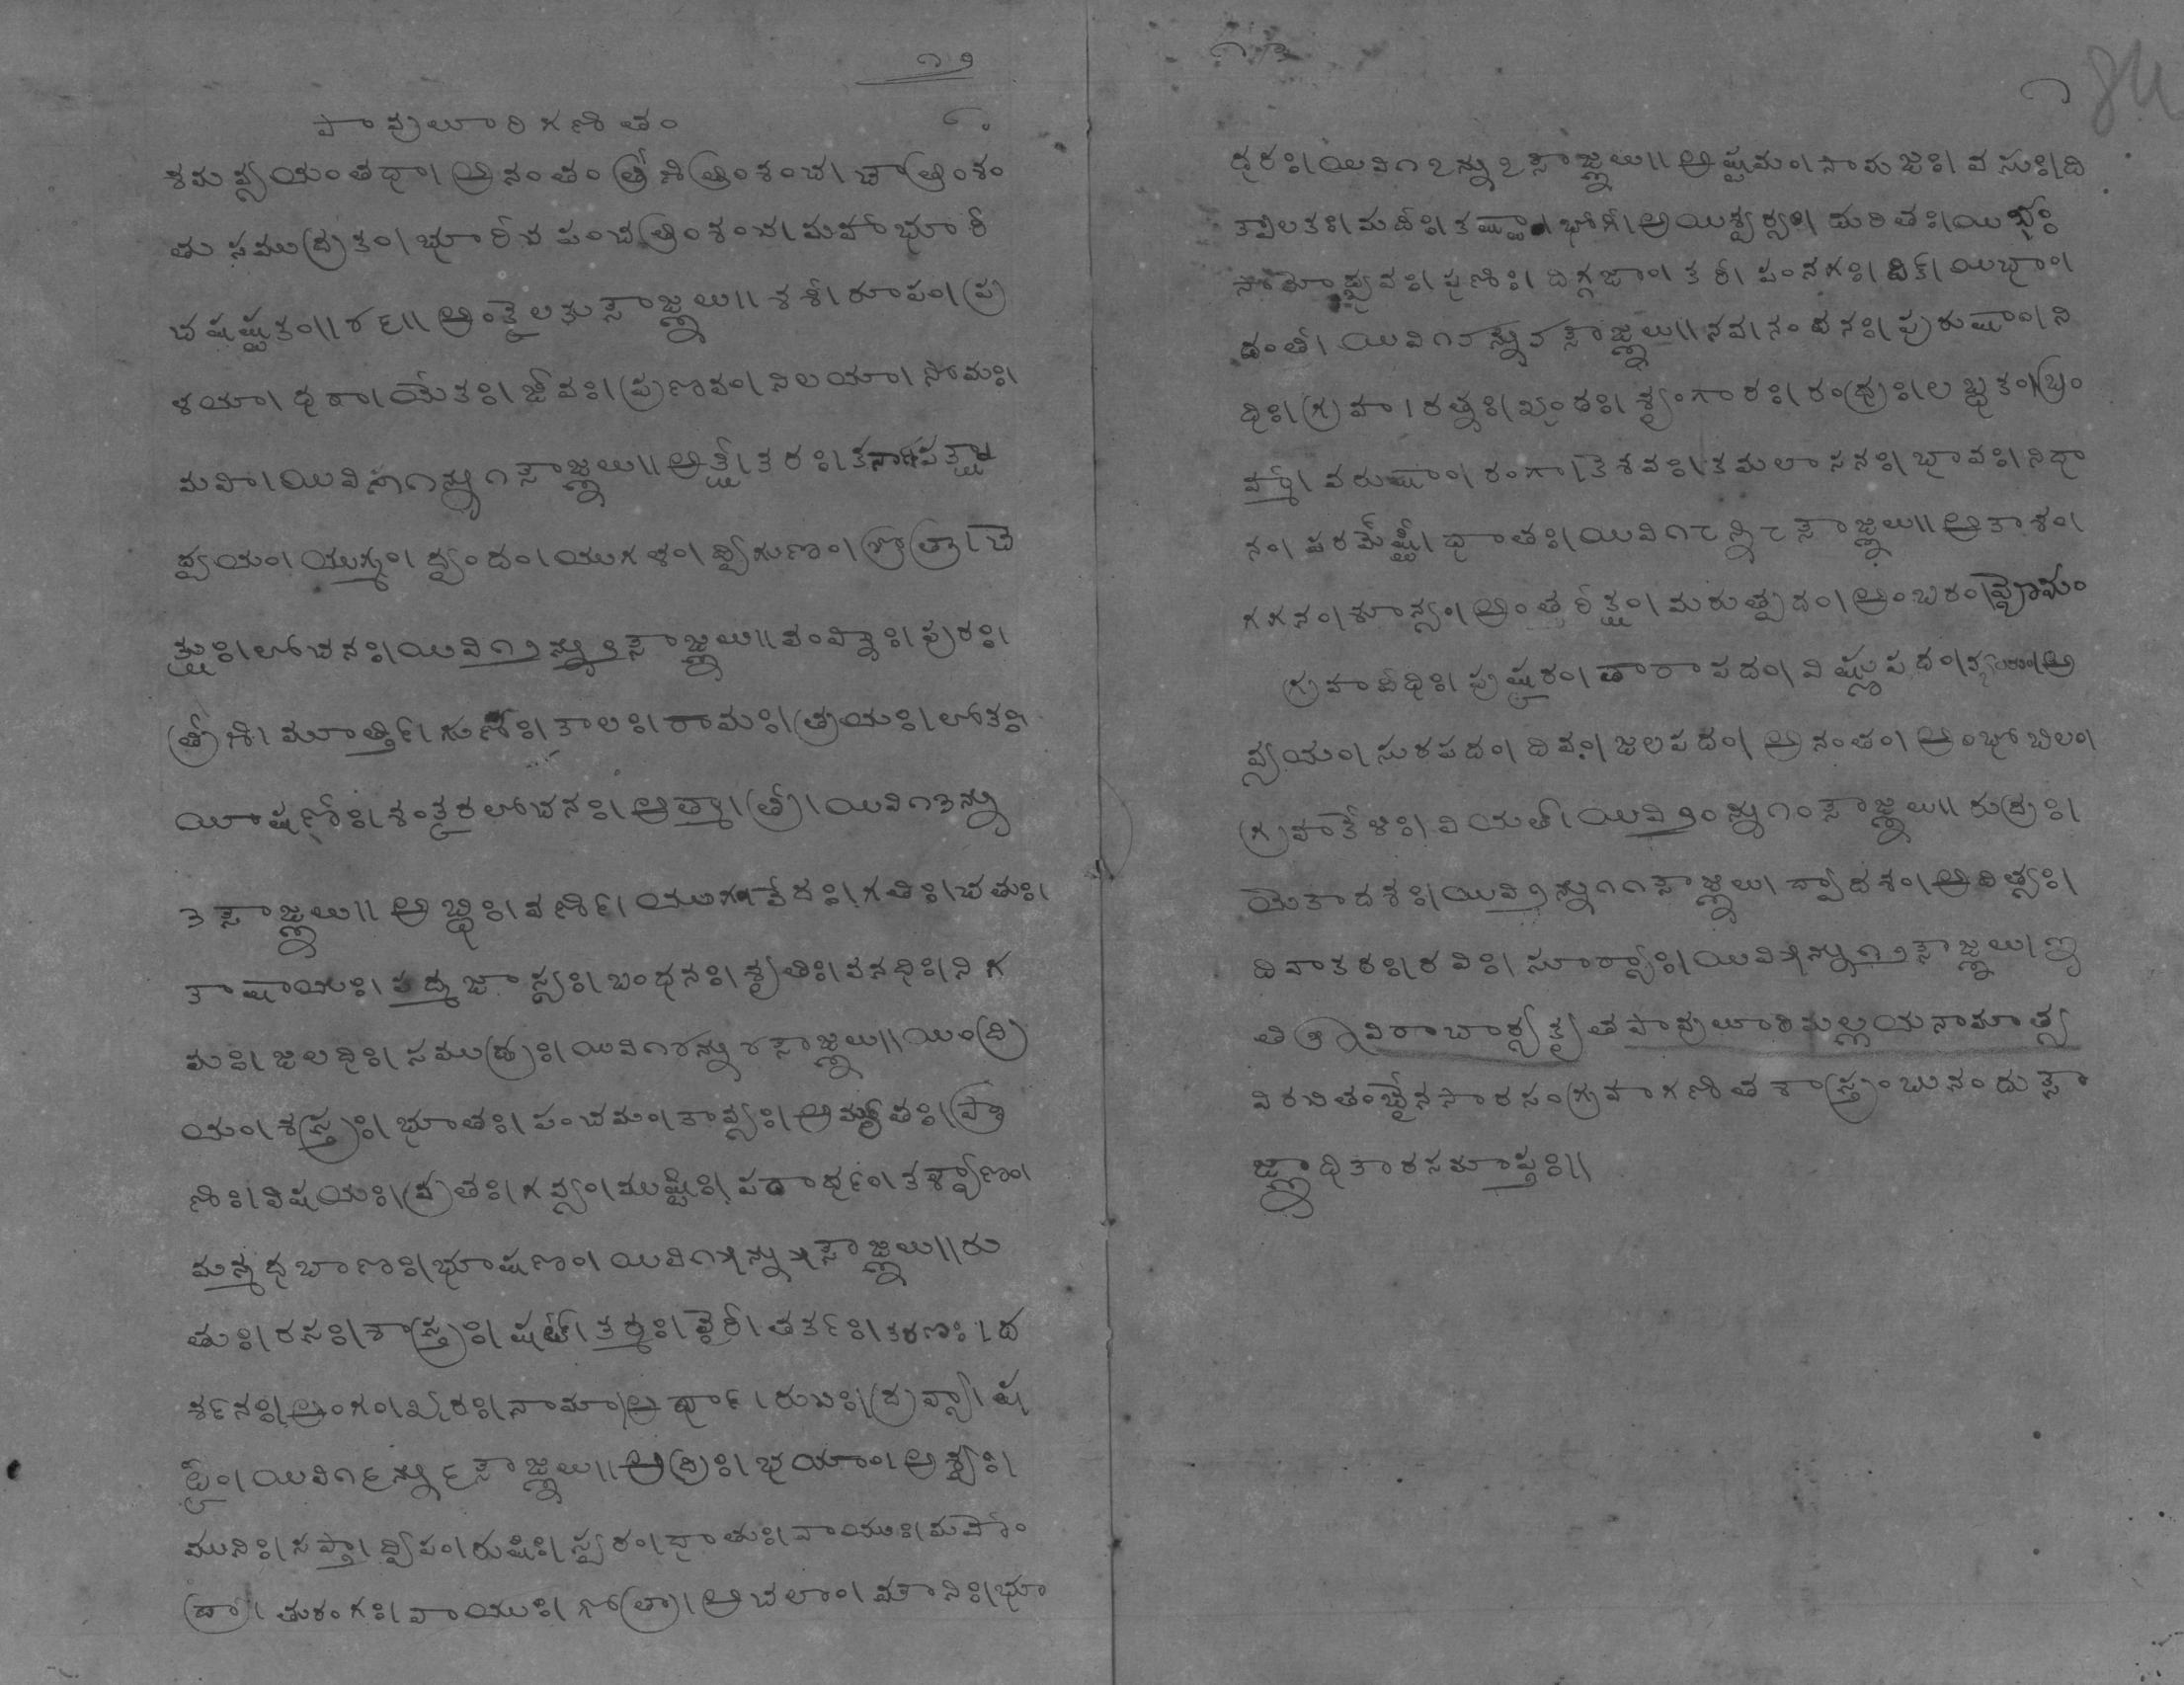 ౧౨
పావులూరిగణితం
శమవ్యయంతథా। అనంతం త్రీణిత్రింశంచ। చాత్రింశం
తు సముద్రకం। భూరిచ పంచత్రింశంచ। మహాభూరి
చ షష్ట్వకం॥ ౪౬॥ అంకైలకు సాజ్ఞలు॥ శశి। రూపం। ప్ర
ళయా। ధరా। యేకః। జీవః। ప్రణవం। నిలయా। సోమః।
మహి। యివి ౧న్ను ౧ సాజ్ఞలు॥ అక్షి। కరః।
ద్వయం। యుగ్మం। ద్వందం। యుగళం। ద్విగుణం। శ్రోత్రా। చ
క్షుః। లోచనః। యివి ౧౨న్ను ౨ సాజ్ఞలు॥ వంహ్నిః। పురః।
త్రీణి। మూర్త్తి। గుణోః। కాలః। రామః। త్రయః। లోకః।
యీషణోః। శంకరలోచనః। ఆత్మా। త్రీ। యివి ౧౩న్ను
౩ సాజ్ఞలు॥ అబ్ధిః। వర్ణి। యుగ వేదః। గతిః। చతుః।
కాషాయః। పద్మజాస్యః। బంధనః। శ్రుతిః। వనధిః। నిగ
మః। జలధిః। సముద్రః। యివి ౧౪న్ను ౪ సాజ్ఞలు॥ యింద్రి
యం। శస్త్రః। భూతః। పంచమం। కావ్యః। అమృతః। ప్రా
ణిః। విషయః। వ్రతః। గవ్యం। ముష్టిః। పదార్థం।
మన్మధబాణః। భూషణం। యివి ౧౫న్ను ౫ సాజ్ఞలు॥ రు
తుః। రసః। శాస్త్రః। షట్। కర్మః। వైరి। తర్కః। కరణః। ద
ర్శనః। అంగం। ఖరః। నామా। అర్థా। రుచిః। ద్రవ్యా। ష
యివి ౧౬న్ను ౬ సాజ్ఞలు॥ అద్రిః। భయాం। అశ్వః।
మునిః। సప్తా। ద్వీపం। రుషిః। స్వరం। ధాతుః। వాయుః। మహీం
ద్రా। తురంగః। వాయుః। గోత్రా। అచలాం। మౌనిః। భూ
౧౩
84
ధరః। యివి ౧౭న్ను ౭ సాజ్ఞలు॥ అష్టమం। సామజః। వసుః। ది
మదీః। భోగి। అయిశ్వర్యః। యిభః
ఫణిః। దిగ్గజాం। కరి। పంనగః। దిక్। యిభాం।
దంతి। యివి ౧౮న్ను ౮ సాజ్ఞలు॥ నవ। నందనః। పురుషాం। ని
ధిః। గ్రహా। రత్నః। ఖండః। శృంగారః। రంధ్రః। లబ్ధకం। బ్రం
హ్మో। వరుషాం। రంగా। కేశవః। కమలాసనః। భావః। నిధా
నం। పరమేష్టీ। ధాతః। యివి ౧౯న్ని ౯ సాజ్ఞలు॥ ఆకాశం।
గగనం। శూన్యం। అంతరిక్షం। మరుత్పదం। అంబరం। వ్యోమం
గ్రహావధిః। పుష్కరం। తారాపదం। విష్ణుపదం। అ
వ్యయం। సురపదం। దివం। జలపదం। అనంతం। అంభోబిలం।
గ్రహాకేళిః। వియత్। యివి ౨౦న్ను ౧౦ సాజ్ఞలు॥ రుద్రః।
యేకాదశః। యివి ౨న్ను ౧౧ సాజ్ఞలు। ద్వాదశం। ఆదిత్యః।
దివాకరః। రవిః। సూర్యాః। యివి ౫న్ను ౧౨ సాజ్ఞలు। ఇ
తి శ్రీవిరాచార్యకృత పావులూరిమల్లయనామాత్య
విరచితంబైన సారసంగ్రహగణితశాస్త్రంబునందు సా
జ్ఞాధికారసమాప్తః॥